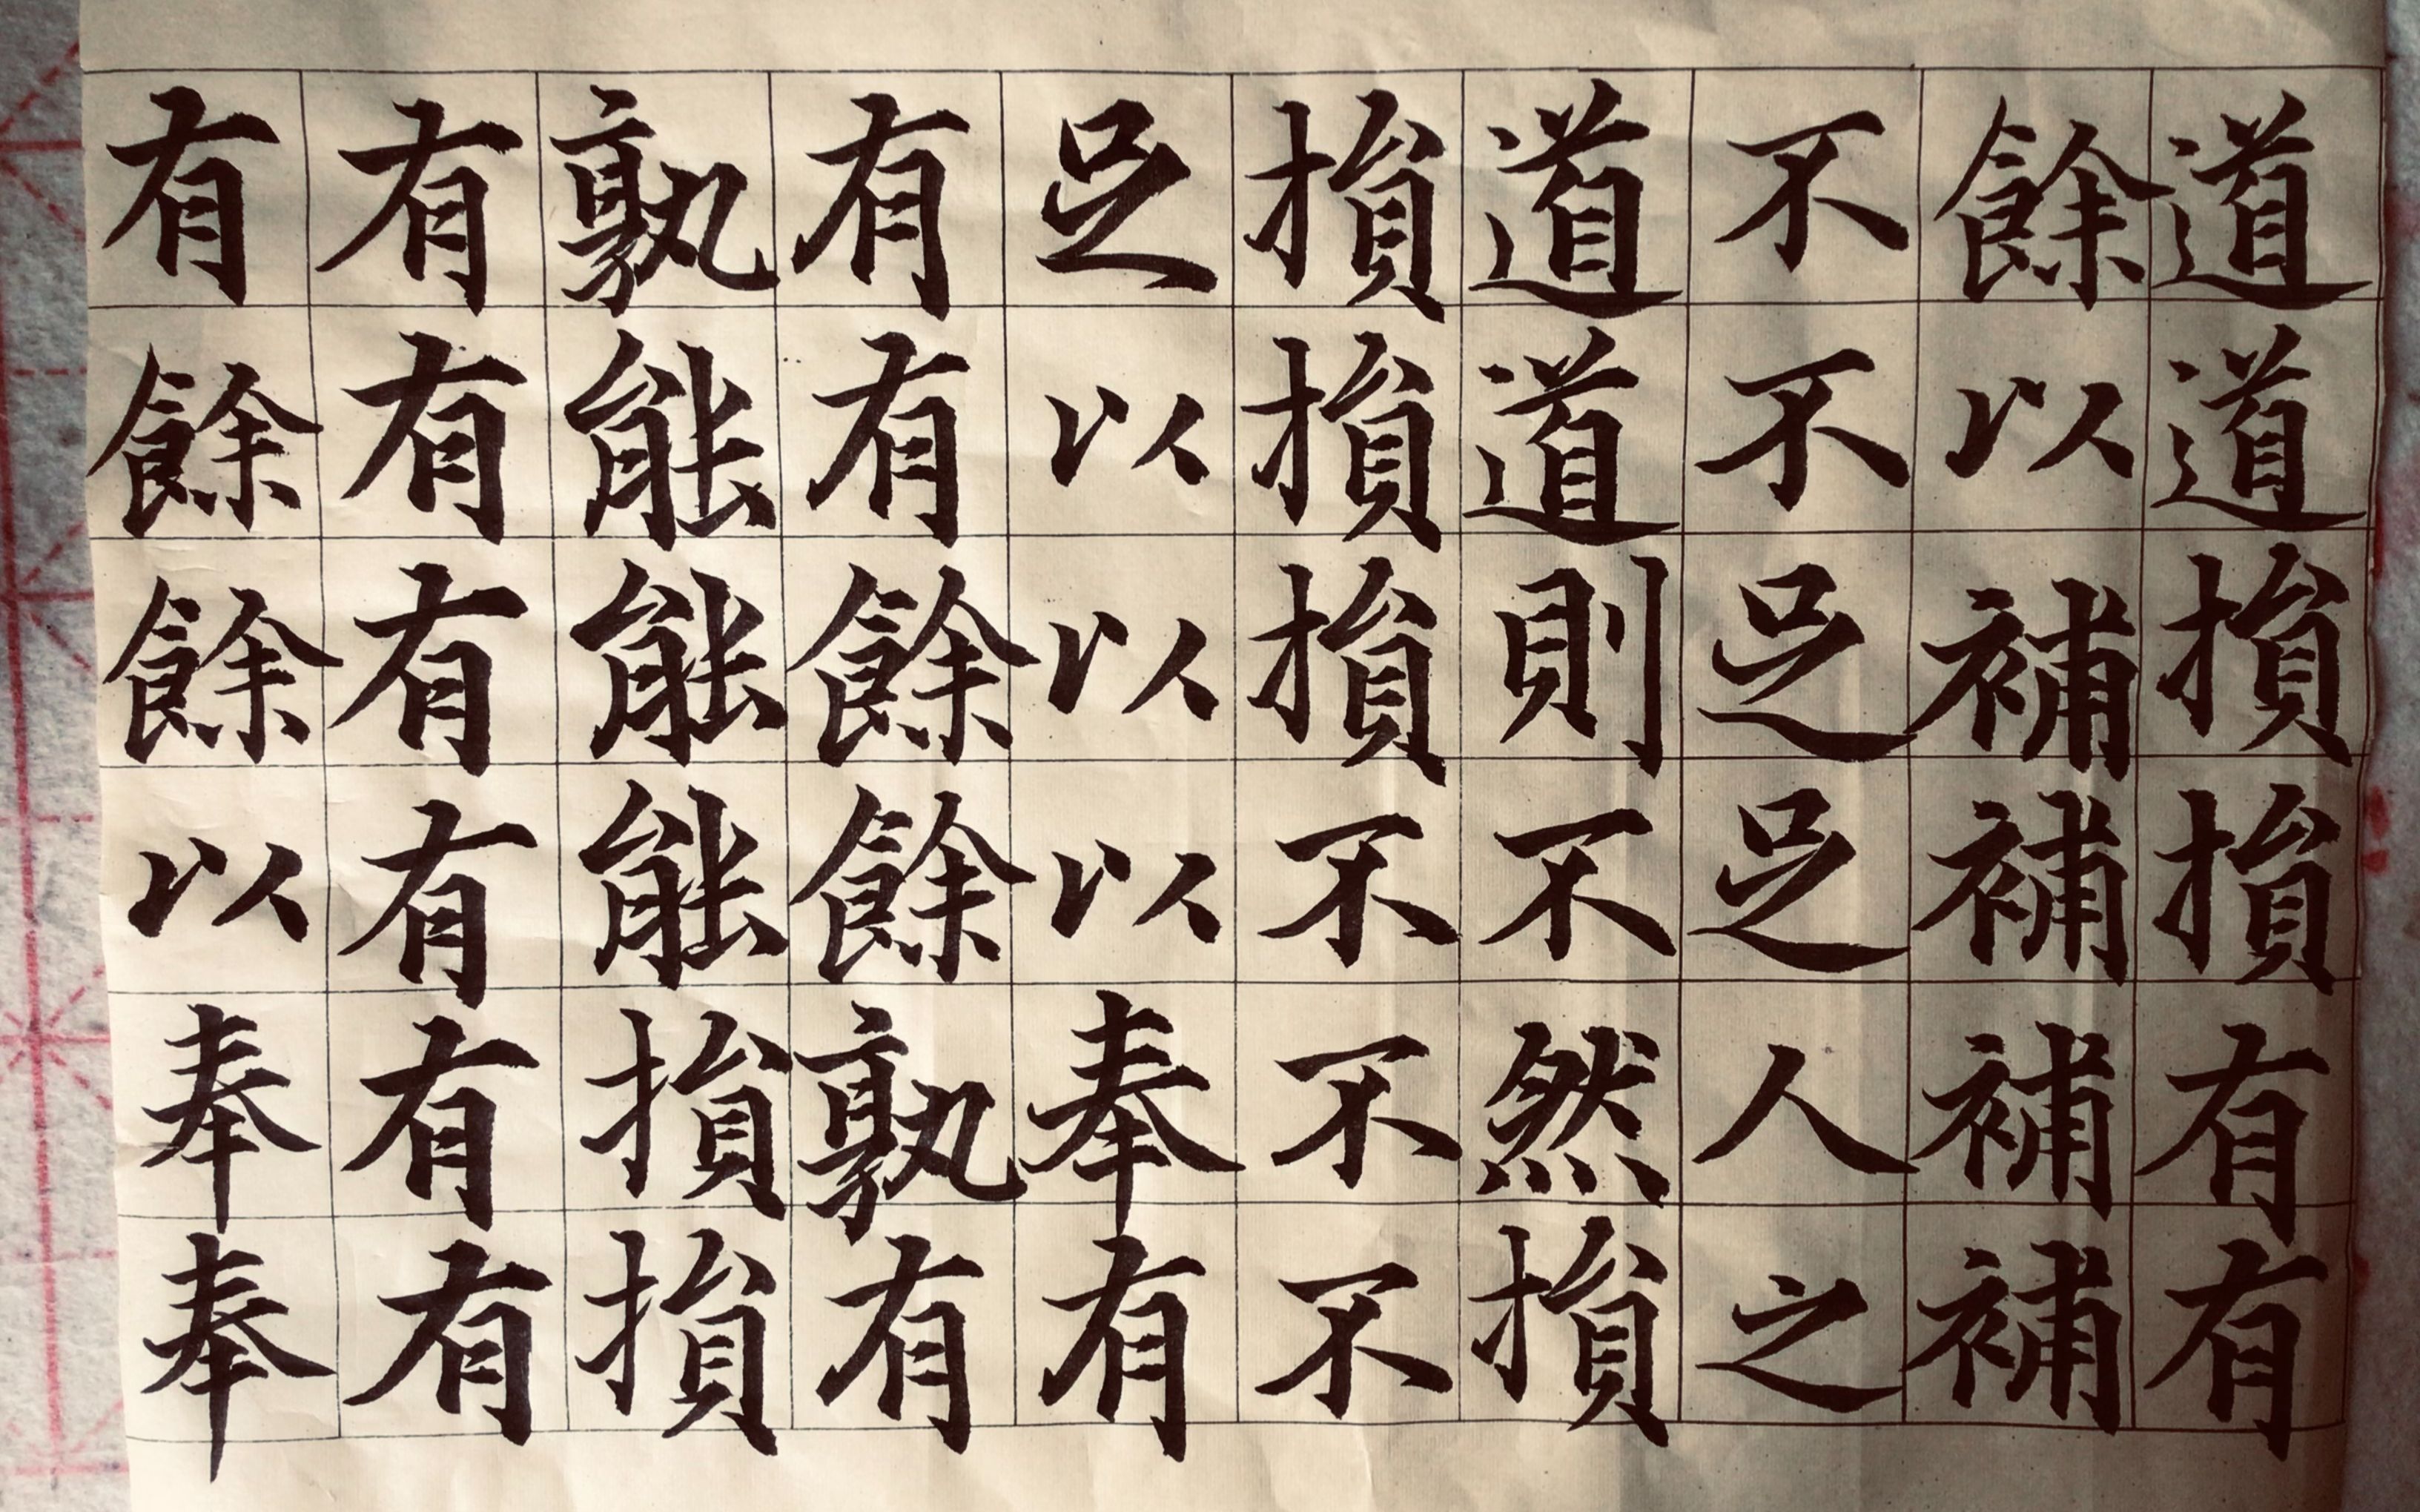 道道損損有有
餘以補補補補
不不足足人之
道道則不然損
損損損不不不
足以以以奉有
有有餘餘孰有
孰能能能損損
有有有有有有
有餘餘以奉奉